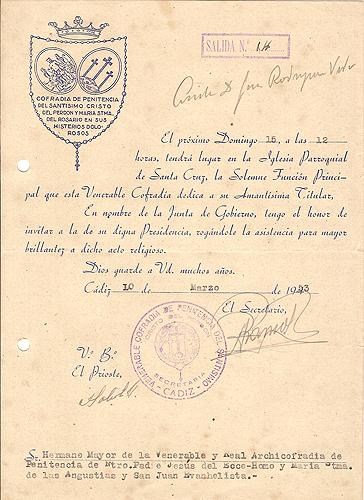 SALIDA N.º 14
COFRADIA DE PENITENCIA
DEL SANTISIMO CRISTO
DEL PERDON Y MARIA STMA.
DEL ROSARIO EN SUS
MISTERIOS DOLO-
ROSOS
El próximo Domingo 15, a las 12
horas, tendrá lugar en la Iglesia Parroquial
de Santa Cruz, la Solemne Función Princi-
pal que esta Venerable Cofradía dedica a su Amantísima Titular.
En nombre de la Junta de Gobierno, tengo el honor de
invitar a la de su digna Presidencia, rogándole la asistencia para mayor
brillantez a dicho acto religioso.
Dios guarde a Vd. muchos años.
Cádiz 10 de Marzo de
El Secretario,
VENERABLE COFRADIA DE PENITENCIA DEL SANTISIMO
SECRETARIA
CADIZ
V.º B.º
El Prioste,
S. Hermano Mayor de la Venerable y Real Archicofradia de
Penitencia de Ntro. Padre Jesús del Ecce-Homo y Maria Stma.
de las Angustias y San Juan Evanhelista.-